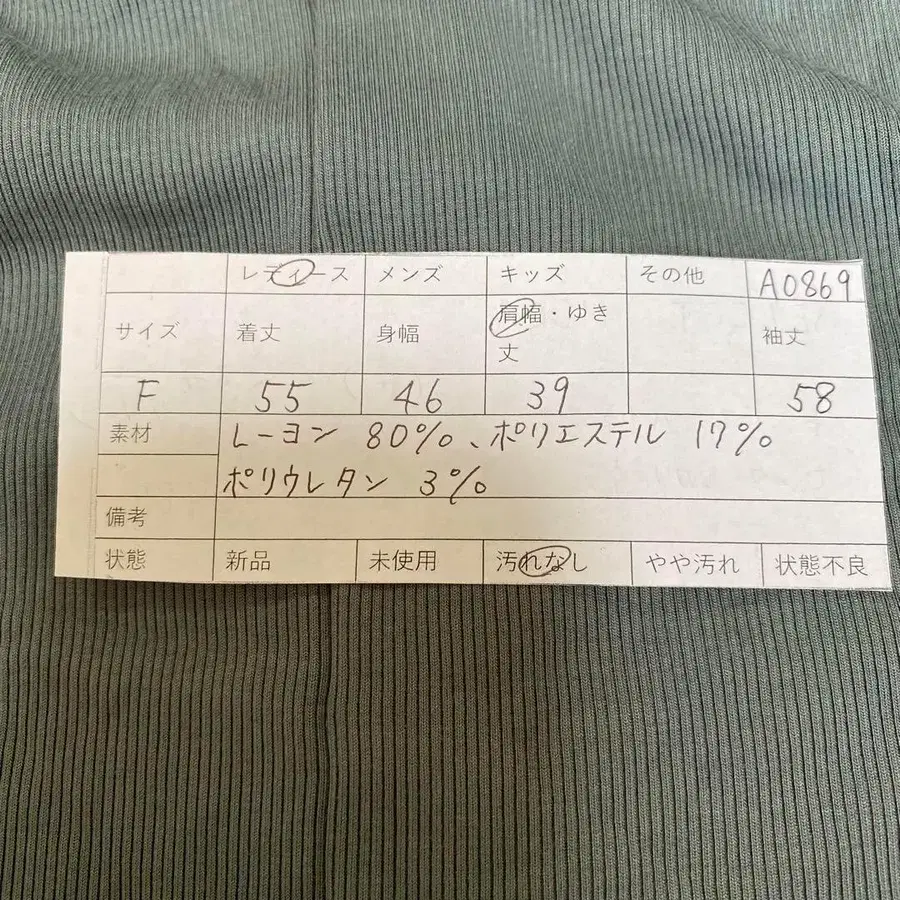 レディース メンズ キッズ その他 A0869
サイズ 着丈 身幅 肩幅・ゆき丈 袖丈
F 55 46 39 58
素材 レーヨン 80%、ポリエステル 17%
ポリウレタン 3%
備考
状態 新品 未使用 汚れなし やや汚れ 状態不良